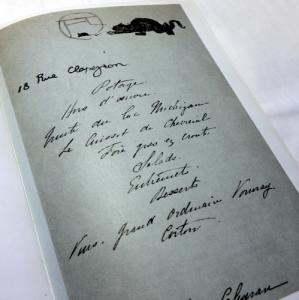 18 Rue Clapeyron
Potage
Hors d'oeuvre
Truite du lac Michigan
Le Cuissot de Chevreuil
Foie gras en croute
Salade
Entremets
Desserts
Vins. Grand ordinaire Vouvray
Corton